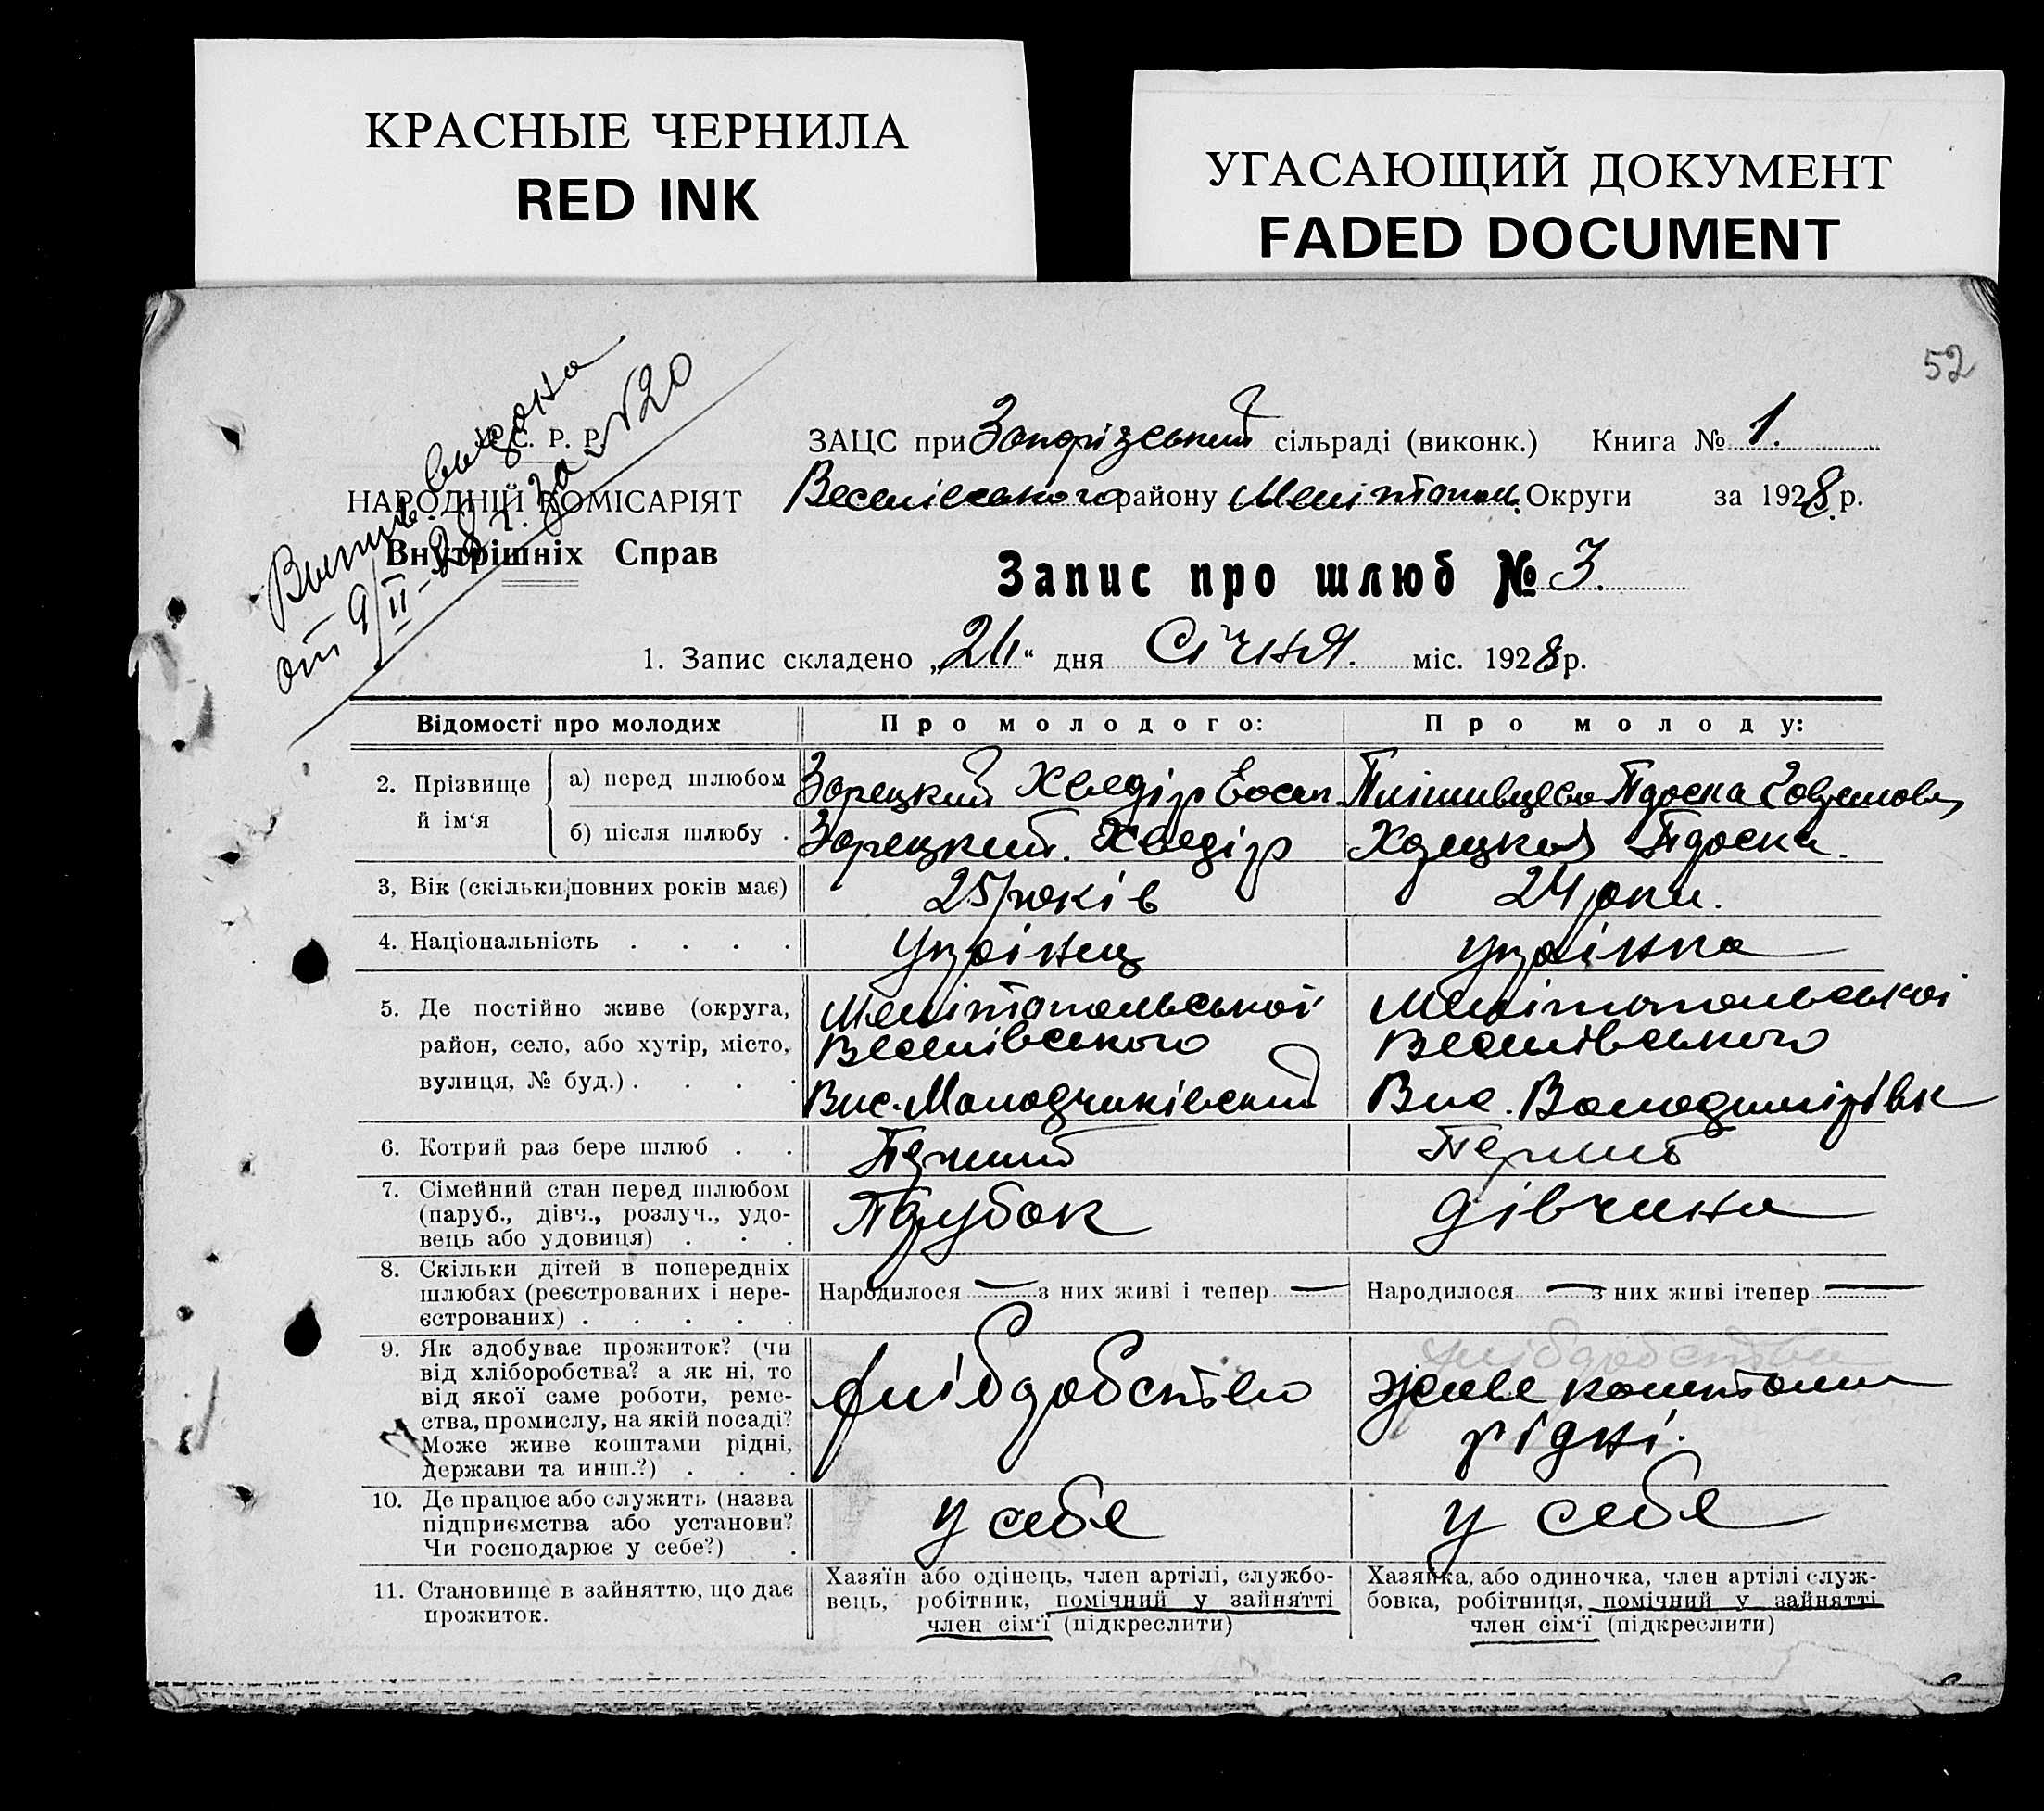 КРАСНЫЕ ЧЕРНИЛА
RED INK
УГАСАЮЩИЙ ДОКУМЕНТ
FADED DOCUMENT
52
Выпись выдана
от 9/II-28 г. за №20
У. С. Р. Р.
НАРОДНІЙ КОМІСАРІЯТ
Внутрішніх Справ
ЗАЦС при сільраді (виконк.) Книга № 1.
Веселівського району Мелітополь. Округи за 1928 р.
Запис про шлюб № 3.
1. Запис складено „ “ дня Січня. міс. 1928 р.
Відомості про молодих Про молодого: Про молоду:
2. Прізвище й ім‘я
а) перед шлюбом Зарецкий Хведір
б) після шлюбу . Зарецкий. Хведір
3, Вік (скільки повних років має) 25 років 24 роки.
4. Національність . . . . Українец Українка
5. Де постійно живе (округа, Мелітопольської Мелітопольської
район, село, або хутір, місто, Веселівського Веселівського
вулиця, № буд.) . . . . Вис. Вис.
6. Котрий раз бере шлюб . . Перший Перший
7. Сімейний стан перед шлюбом Парубок дівчина
(паруб., дівч., розлуч., удо-
вець або удовиця) . . .
8. Скільки дітей в попередніх
шлюбах (реєстрованих і нере- Народилося — з них живі і тепер — Народилося — з них живі ітепер —
єстрованих) . . . . .
9. Як здобуває прожиток? (чи
від хліборобства? а як ні, то хліборобство живе коштами
від якої саме роботи, реме- рідні.
ства, промислу, на якій посаді?
Може живе коштами рідні,
держави та инш.?) . . .
10. Де працює або служить (назва у себе у себе
підприємства або установи?
Чи господарює у себе?) .
11. Становище в зайняттю, що дає
прожиток.
Хазяїн або одінець, член артілі, службо-
вець, робітник, помічний у зайнятті
член сім‘ї (підкреслити)
Хазяйка, або одиночка, член артілі служ-
бовка, робітниця, помічний у зайнятті
член сім‘ї (підкреслити)